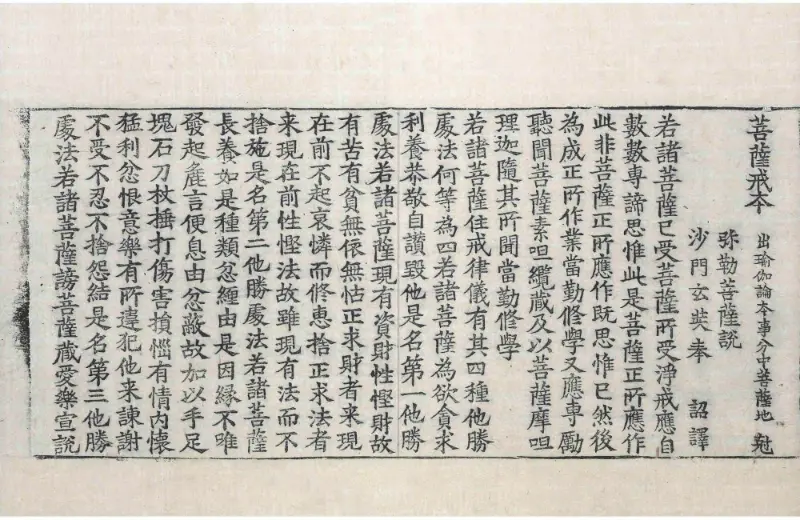 菩薩戒本 出瑜伽論本事分中菩薩地 剋
弥勒菩薩說
沙門玄奘奉 詔譯
若諸菩薩已受菩薩所受淨戒應自
數數專諦思惟此是菩薩正所應作
此非菩薩正所應作既思惟已然後
為成正所作業當勤修學又應專勵
聽聞菩薩素呾纜藏及以菩薩摩呾
理迦隨其所聞當勤修學
若諸菩薩住戒律儀有其四種他勝
處法何等為四若諸菩薩為欲貪求
利養恭敬自讃毀他是名第一他勝
處法若諸菩薩現有資財性慳財故
有苦有貧無依無怙正求財者来現
在前不起哀憐而修惠捨正求法者
来現在前性慳法故雖現有法而不
捨施是名第二他勝處法若諸菩薩
長養如是種類忿纏由是因緣不唯
發起麁言便息由忿蔽故加以手足
塊石刀杖捶打傷害損惱有情内懷
猛利忿恨意樂有所違犯他来諫謝
不受不忍不捨怨結是名第三他勝
處法若諸菩薩謗菩薩藏愛樂宣說